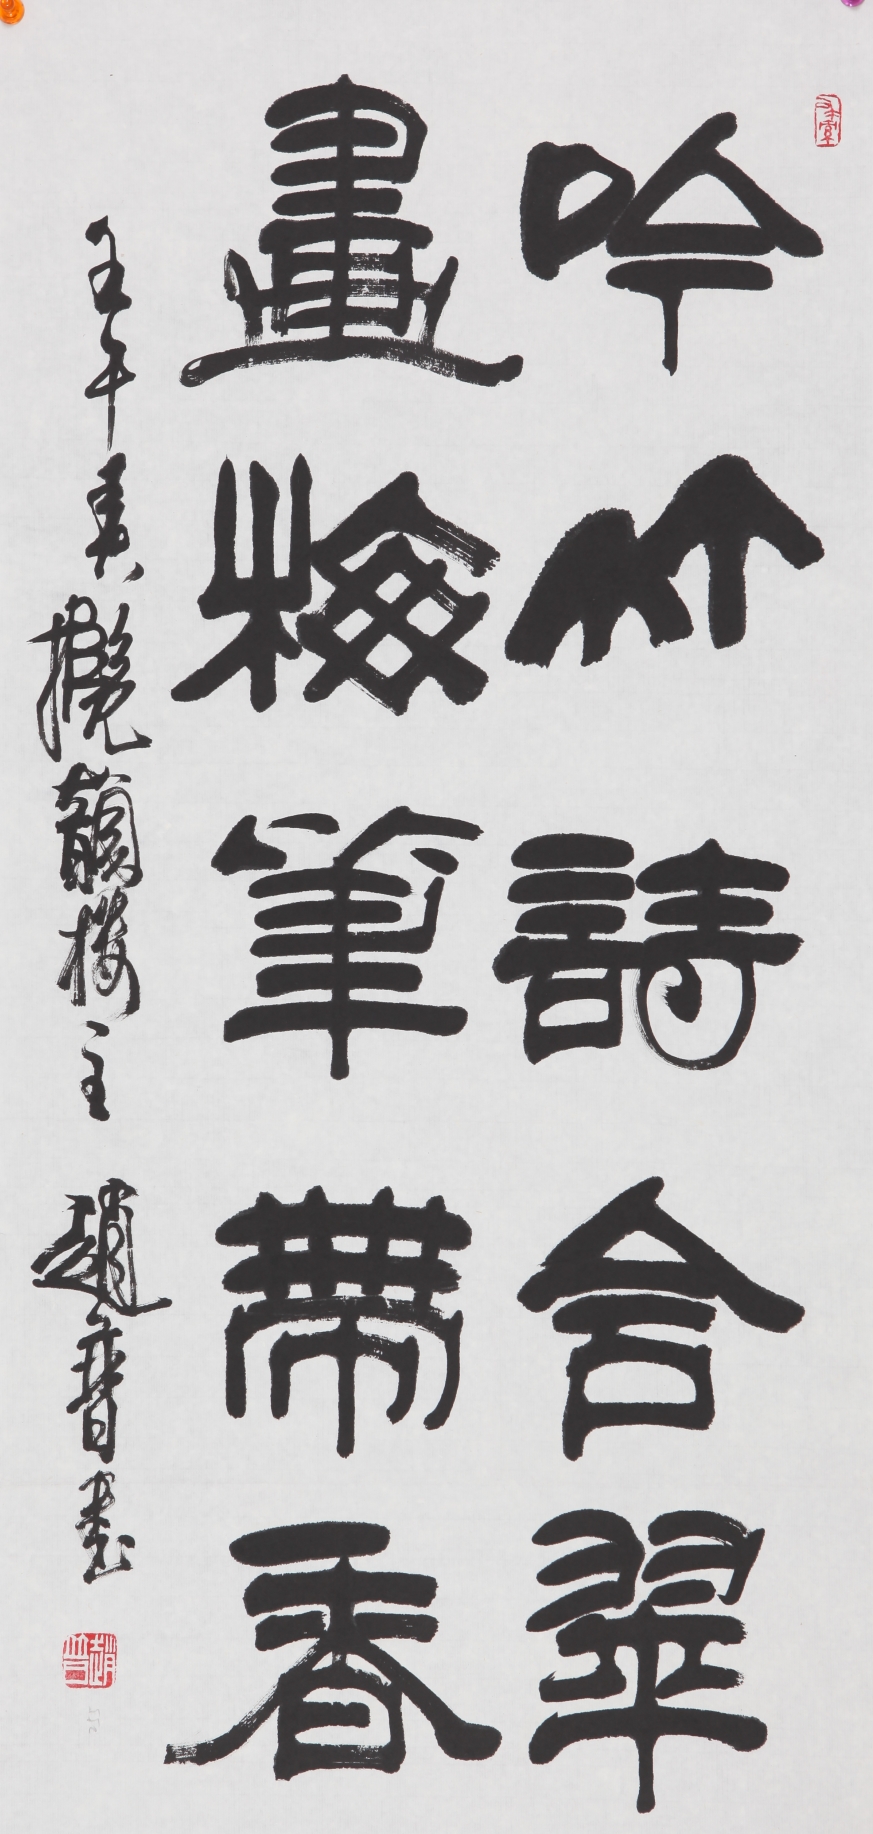 吟竹詩含翠
畫梅筆帶香
壬午夏攬韻樓主趙普書
趙普